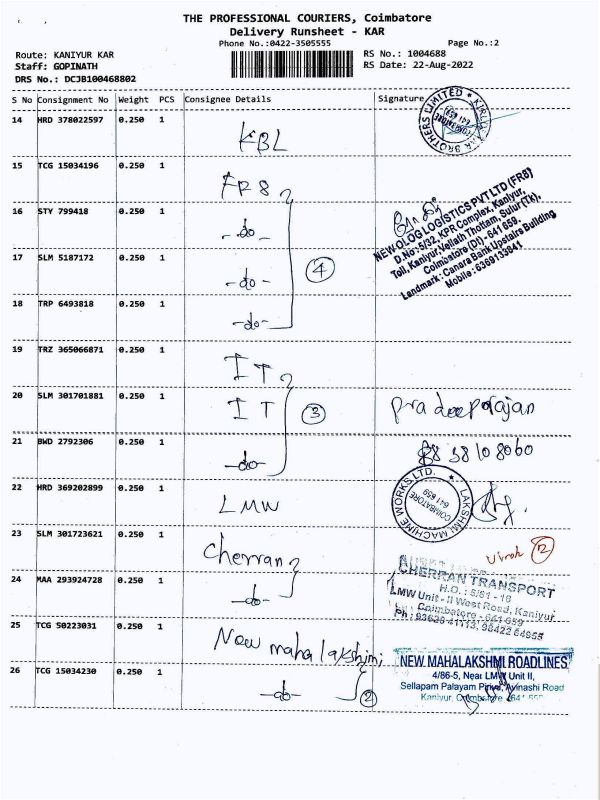 THE PROFESSIONAL COURIERS, Coimbatore
Delivery Runsheet - KAR
Phone No.:0422-3505555 Page No.:2
Route: KANIYUR KAR RS No.: 1004688
Staff: GOPINATH RS Date: 22-Aug-2022
DRS No.: DCJB100468802
S No Consignment No Weight PCS Consignee Details Signature
14 HRD 378022597 0.250 1 KBL
BROTHERS LIMITED COIMBATORE 641 659
15 TCG 15034196 0.250 1 FR8
16 STY 799418 0.250 1 -do-
NEW OLOG LOGISTICS PVT LTD (FR8)
D.No: 5/32, KPR Complex, Kaniyur,
Toll, Kaniyur, Vellath Thottam, Sulur (Tk),
Coimbatore (Dt) - 641 659.
Landmark : Canara Bank Upstairs Building
Mobile : 6369133941
17 SLM 5187172 0.250 1 -do- 4
18 TRP 6493818 0.250 1 -do-
19 TRZ 365066871 0.250 1 IT
20 SLM 301701881 0.250 1 IT 3 Pradeeporajan
21 BWD 2792306 0.250 1 -do- 8838108060
22 HRD 369202899 0.250 1 LMW
LAKSHMI MACHINE WORKS LTD. COIMBATORE 641 659
23 SLM 301723621 0.250 1 Cherran
12
CHERRAN TRANSPORT
H.O. : 5/61 - 16
LMW Unit - II West Road, Kaniyur
Coimbatore - 641 659
24 MAA 293924728 0.250 1 -do-
25 TCG 50223031 0.250 1 New mahalakshmi
26 TCG 15034230 0.250 1 -do- 2
NEW MAHALAKSHMI ROADLINES
4/86-5, Near LMW Unit II,
Sellapam Palayam Pirivu, Avinashi Road
Kaniyur, Coimbatore